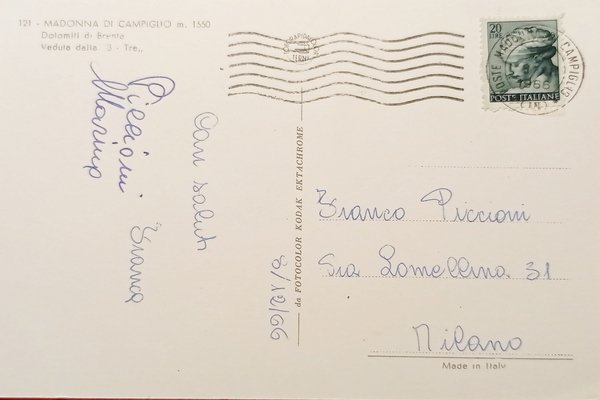 121 - MADONNA DI CAMPIGLIO m. 1550
Dolomiti di Brenta
Veduta dalla "3 - Tre"
20
LIRE
POSTE ITALIANE
POSTE MADONNA DI CAMPIGLIO
1966
(TN)
Cari saluti
Franca
Piccioni
Marino
8/12/66
da FOTOCOLOR KODAK EKTACHROME
Franco Piccioni
Via Lomellina 31
Milano
Made in Italy